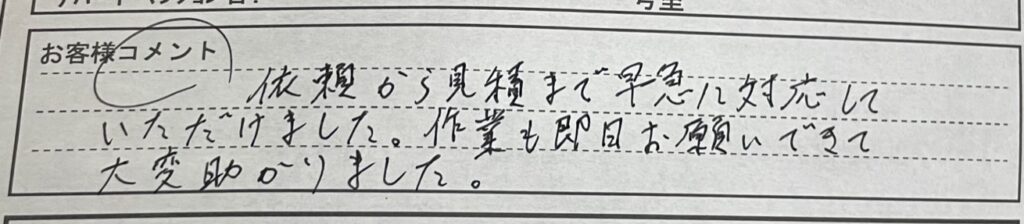 アパート・マンション名:
号室
お客様コメント
依頼から見積まで早急に対応して
いただけました。作業も即日お願いできて
大変助かりました。